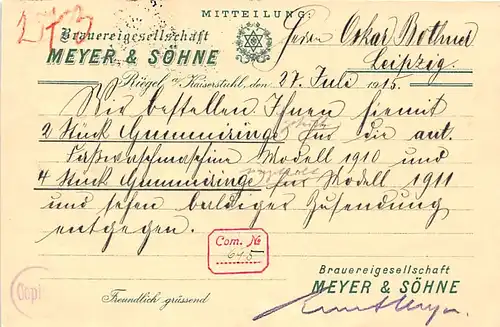 MITTEILUNG:
Brauereigesellschaft
MEYER & SÖHNE
Herrn Oskar Bothner
Leipzig.
Riegel a/Kaiserstuhl, den 27. Juli 1915.
Wir bestellen Ihnen hiemit
2 Stück Gummiringe für die aut.
Faßwaschmaschine Modell 1910 und
4 Stück Gummiringe für Modell 1911
und sehen baldiger Zusendung
entgegen.
Com. №
645
Copi
Freundlich grüssend
Brauereigesellschaft
MEYER & SÖHNE